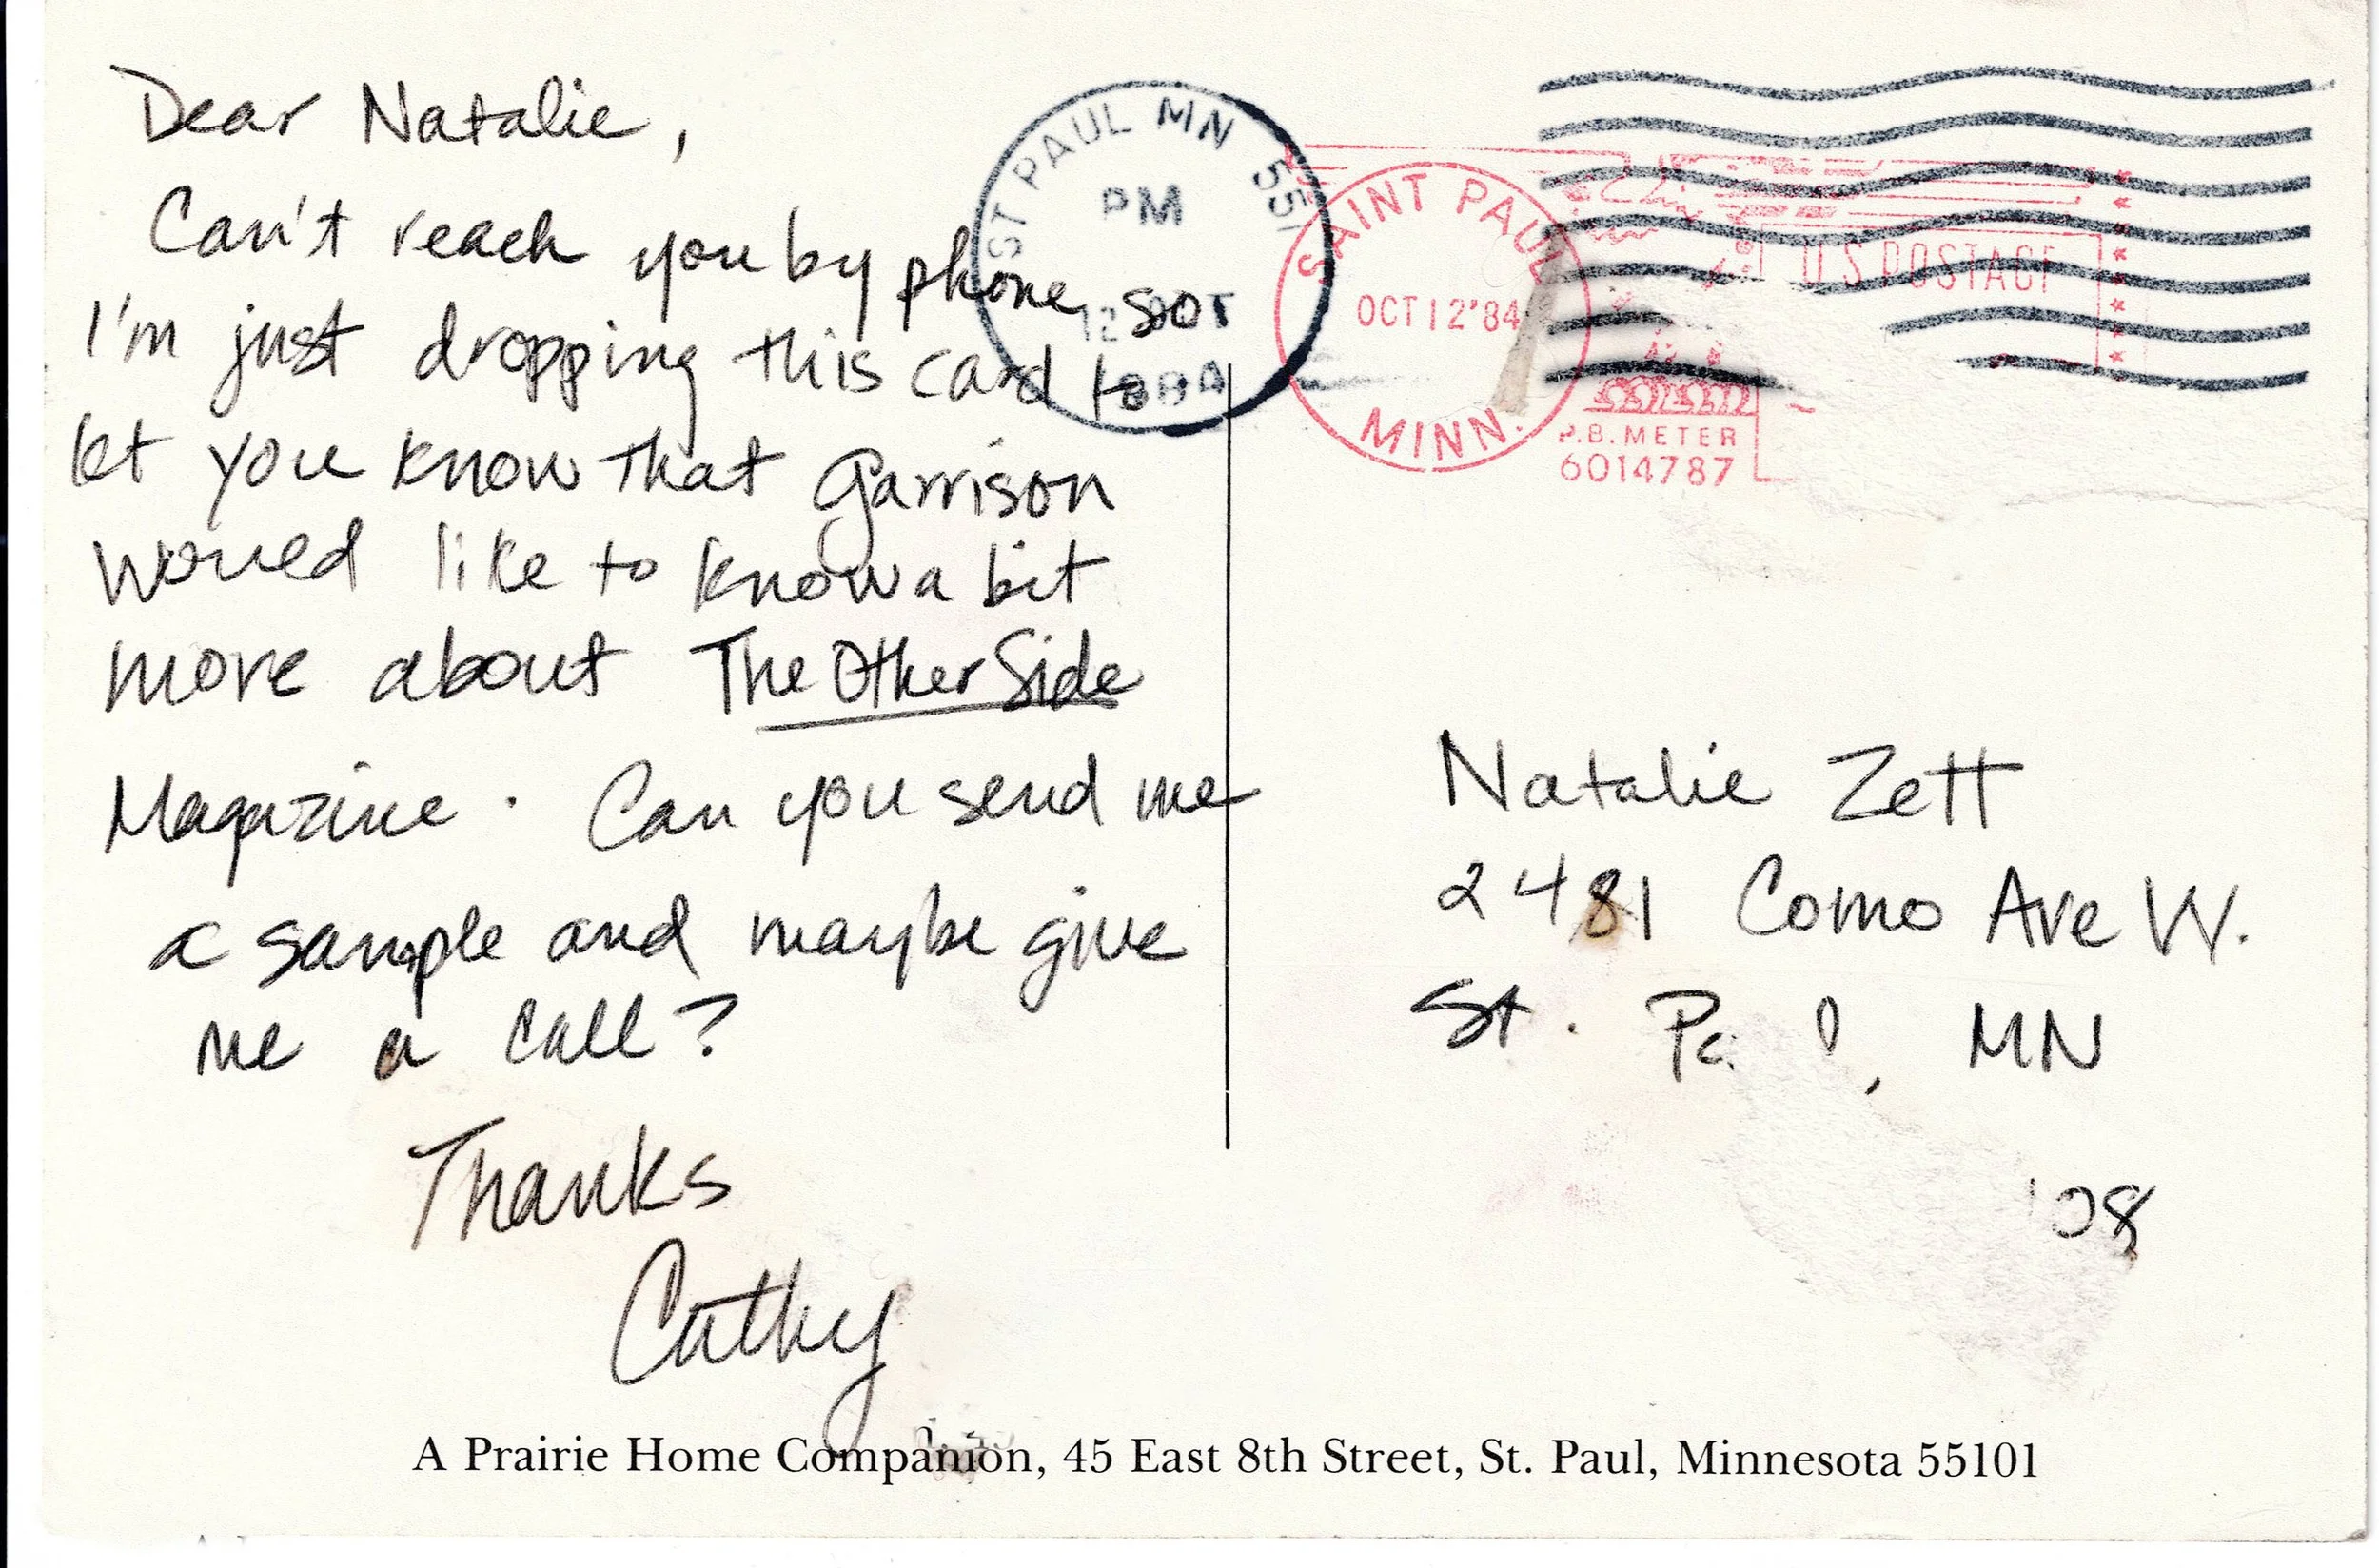 Dear Natalie,
Can't reach you by phone, so
I'm just dropping this card to
let you know that Garrison
would like to know a bit
more about The Other Side
Magazine. Can you send me
a sample and maybe give
me a call?
Thanks
Cathy
ST PAUL MN 551
PM
12 OCT
1984
SAINT PAUL
OCT 12 '84
MINN.
U.S. POSTAGE
P.B. METER
6014787
Natalie Zett
2481 Como Ave W.
St. , MN
08
A Prairie Home Companion, 45 East 8th Street, St. Paul, Minnesota 55101